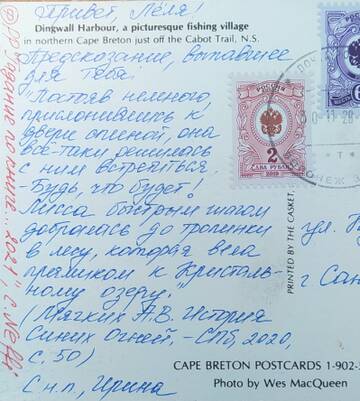 Привет, Лёля!
Dingwall Harbour, a picturesque fishing village
in northern Cape Breton just off the Cabot Trail, N.S.
Предсказание, выпавшее
для тебя.
"Постояв немного,
прислонившись к
двери спиной, она
всё-таки решилась
с ним встретиться.
- Будь, что будет!
Лисса быстрым шагом
добралась до тропинки
в лесу, которая вела
прямиком к Кристаль-
ному озеру."
(Мягких А.В. История
Синих Огней, - СПб, 2020,
с. 50)
С н.п., Ирина
"Гадание по книге. 2021", с.
РОССИЯ
2
ДВА РУБЛЯ
2019
PRINTED BY THE CASKET,
ул.
г Сан
CAPE BRETON POSTCARDS 1-902-
Photo by Wes MacQueen